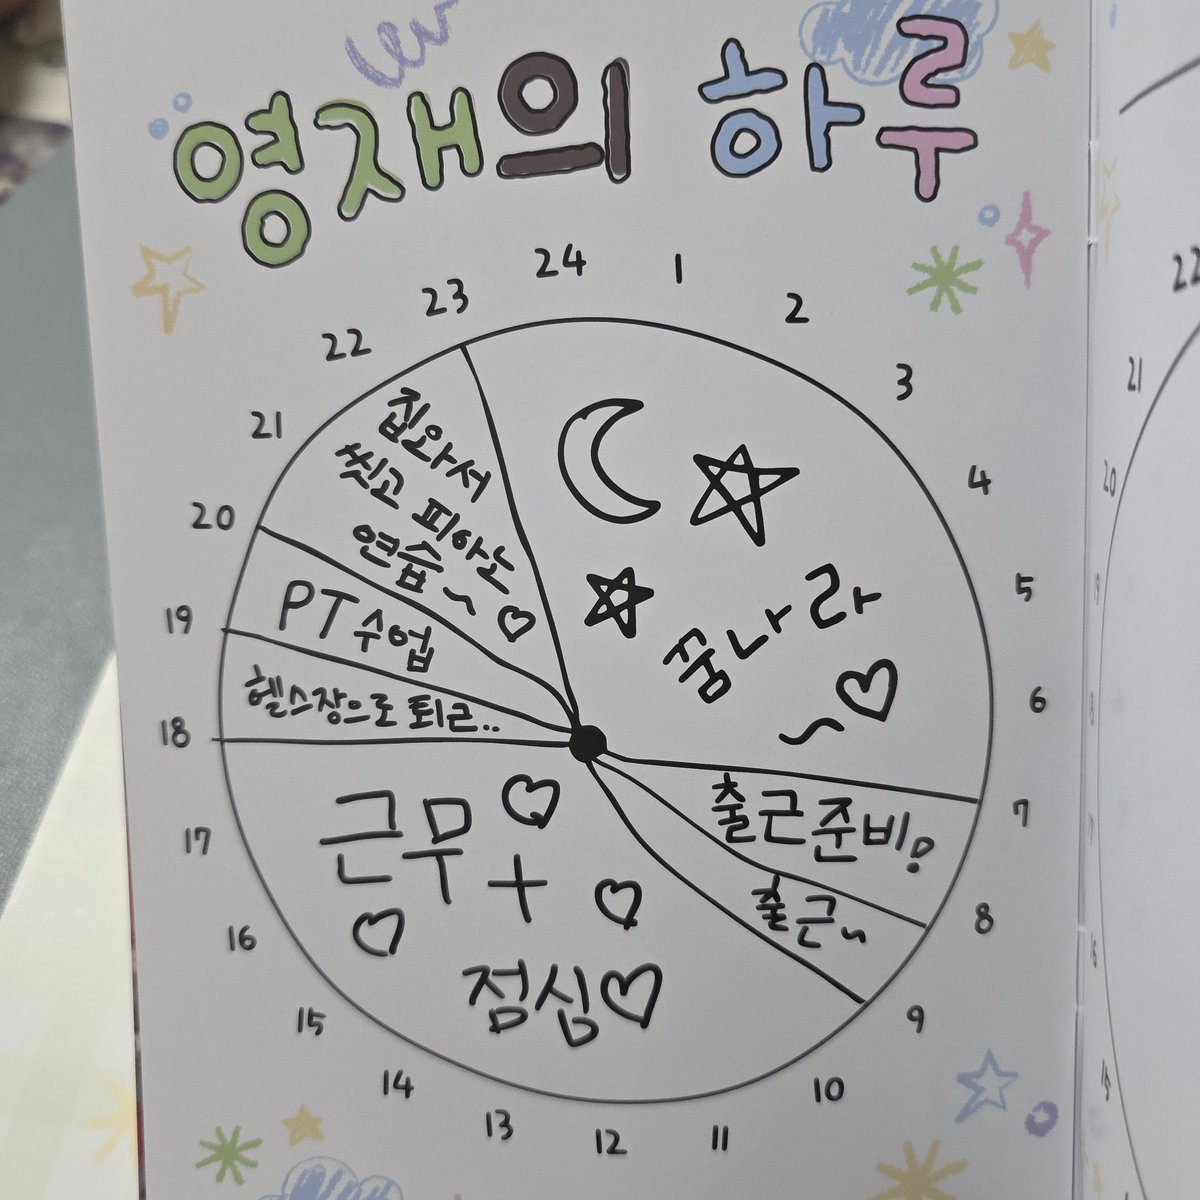 영재의 하루
24
1
2
3
4
5
6
7
8
9
10
11
12
13
14
15
16
17
18
19
20
21
22
23
꿈나라
~♡
출근준비!
출근~
근무♡
+
점심♡
헬스장으로 퇴근..
PT 수업
집와서
씻고 피아노
연습~♡
22
21
20